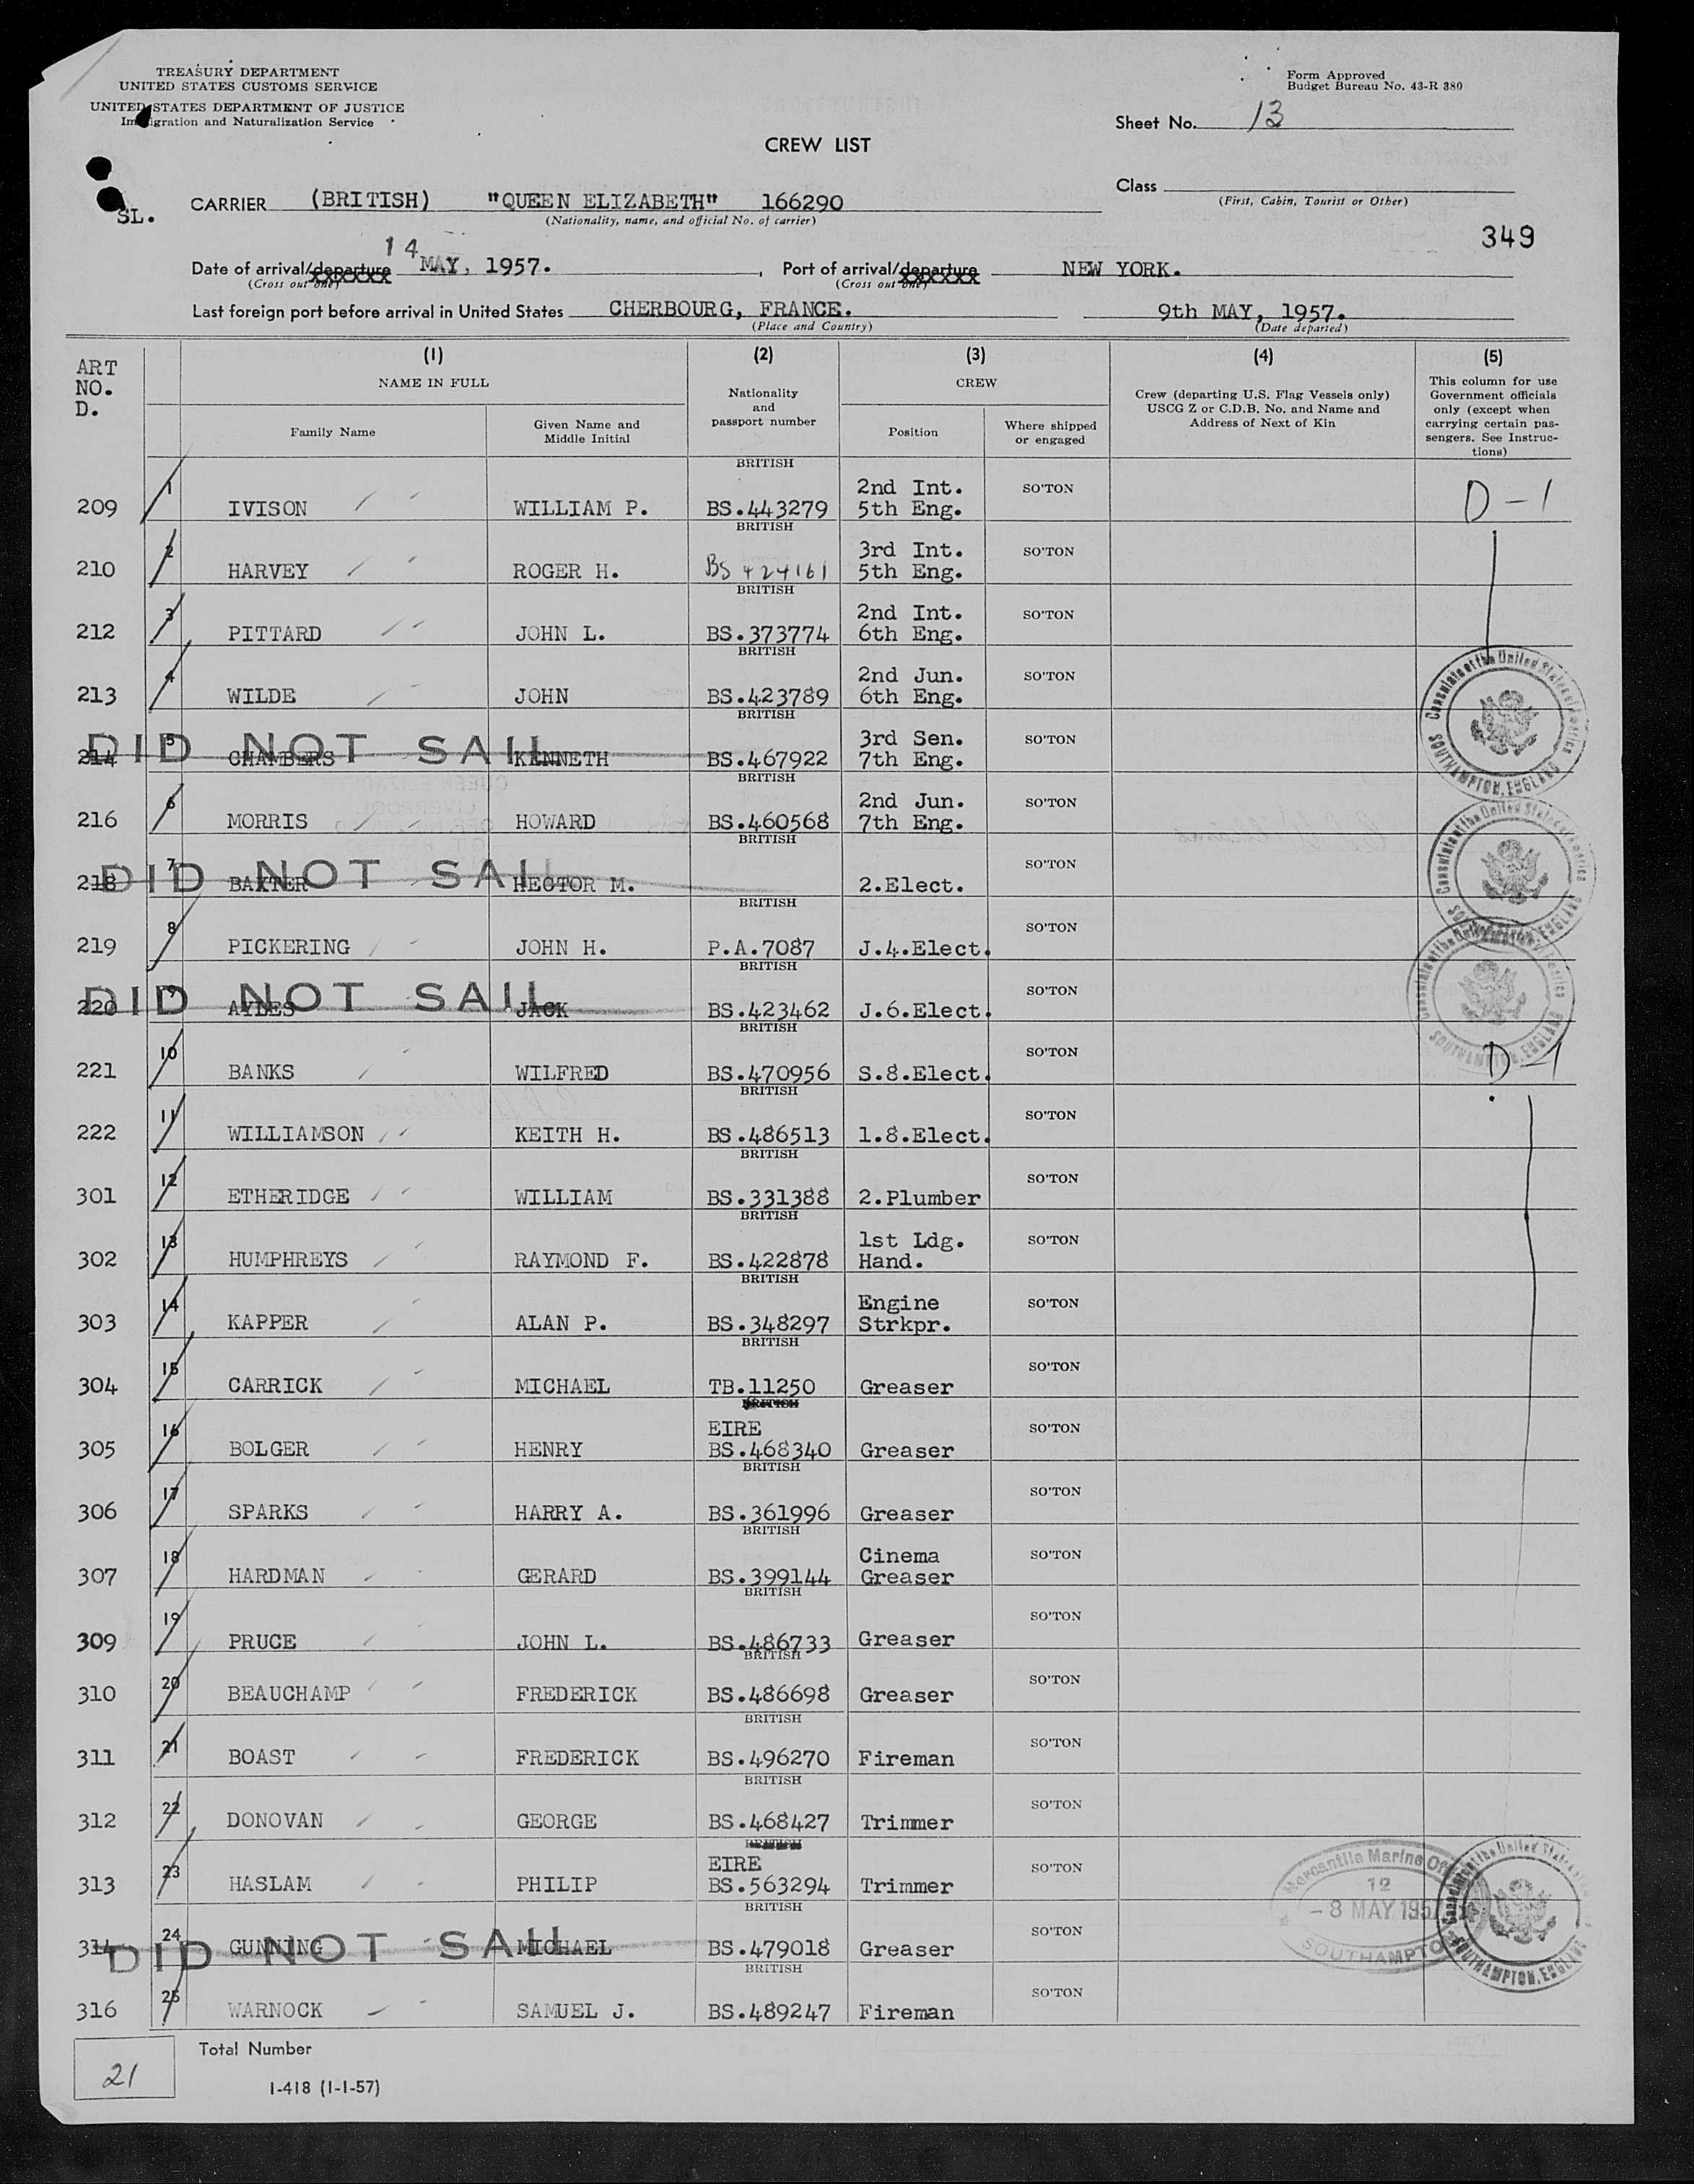 TREASURY DEPARTMENT
UNITED STATES CUSTOMS SERVICE
UNITED STATES DEPARTMENT OF JUSTICE
Immigration and Naturalization Service
Form Approved
Budget Bureau No. 43-R 380
Sheet No. 13
CREW LIST
Class
(First, Cabin, Tourist or Other)
SL. CARRIER (BRITISH) "QUEEN ELIZABETH" 166290
(Nationality, name, and official No. of carrier)
349
Date of arrival/departure 14 MAY, 1957. , Port of arrival/departure NEW YORK.
(Cross out one) (Cross out one)
Last foreign port before arrival in United States CHERBOURG, FRANCE. 9th MAY, 1957.
(Place and Country) (Date departed)
ART NO. D. (1) (2) (3) (4) (5)
NAME IN FULL Nationality and passport number CREW Crew (departing U.S. Flag Vessels only) USCG Z or C.D.B. No. and Name and Address of Next of Kin This column for use Government officials only (except when carrying certain passengers. See Instructions)
Family Name Given Name and Middle Initial Position Where shipped or engaged
209 1 IVISON WILLIAM P. BRITISH BS.443279 2nd Int. 5th Eng. SO'TON D-1
210 2 HARVEY ROGER H. BRITISH BS 424161 3rd Int. 5th Eng. SO'TON
212 3 PITTARD JOHN L. BRITISH BS.373774 2nd Int. 6th Eng. SO'TON
213 4 WILDE JOHN BRITISH BS.423789 2nd Jun. 6th Eng. SO'TON
214 5 CHAMBERS KENNETH BRITISH BS.467922 3rd Sen. 7th Eng. SO'TON
DID NOT SAIL
216 6 MORRIS HOWARD BRITISH BS.460568 2nd Jun. 7th Eng. SO'TON
218 7 BAXTER HECTOR M. BRITISH 2.Elect. SO'TON
DID NOT SAIL
219 8 PICKERING JOHN H. BRITISH P.A.7087 J.4.Elect. SO'TON
220 9 AYLES JACK BRITISH BS.423462 J.6.Elect. SO'TON
DID NOT SAIL
221 10 BANKS WILFRED BRITISH BS.470956 S.8.Elect. SO'TON D-1
222 11 WILLIAMSON KEITH H. BRITISH BS.486513 1.8.Elect. SO'TON
301 12 ETHERIDGE WILLIAM BRITISH BS.331388 2.Plumber SO'TON
302 13 HUMPHREYS RAYMOND F. BRITISH BS.422878 1st Ldg. Hand. SO'TON
303 14 KAPPER ALAN P. BRITISH BS.348297 Engine Strkpr. SO'TON
304 15 CARRICK MICHAEL BRITISH TB.11250 Greaser SO'TON
305 16 BOLGER HENRY BRITISH EIRE BS.468340 Greaser SO'TON
306 17 SPARKS HARRY A. BRITISH BS.361996 Greaser SO'TON
307 18 HARDMAN GERARD BRITISH BS.399144 Cinema Greaser SO'TON
309 19 PRUCE JOHN L. BRITISH BS.486733 Greaser SO'TON
310 20 BEAUCHAMP FREDERICK BRITISH BS.486698 Greaser SO'TON
311 21 BOAST FREDERICK BRITISH BS.496270 Fireman SO'TON
312 22 DONOVAN GEORGE BRITISH BS.468427 Trimmer SO'TON
313 23 HASLAM PHILIP BRITISH EIRE BS.563294 Trimmer SO'TON
314 24 GUNNING MICHAEL BRITISH BS.479018 Greaser SO'TON
DID NOT SAIL
316 25 WARNOCK SAMUEL J. BRITISH BS.489247 Fireman SO'TON
Consulate of the United States of America
SOUTHAMPTON, ENGLAND
Consulate of the United States of America
SOUTHAMPTON, ENGLAND
Consulate of the United States of America
SOUTHAMPTON, ENGLAND
Mercantile Marine Office
12
-8 MAY 1957
SOUTHAMPTON
Consulate of the United States
SOUTHAMPTON, ENGLAND
21 Total Number
I-418 (1-1-57)